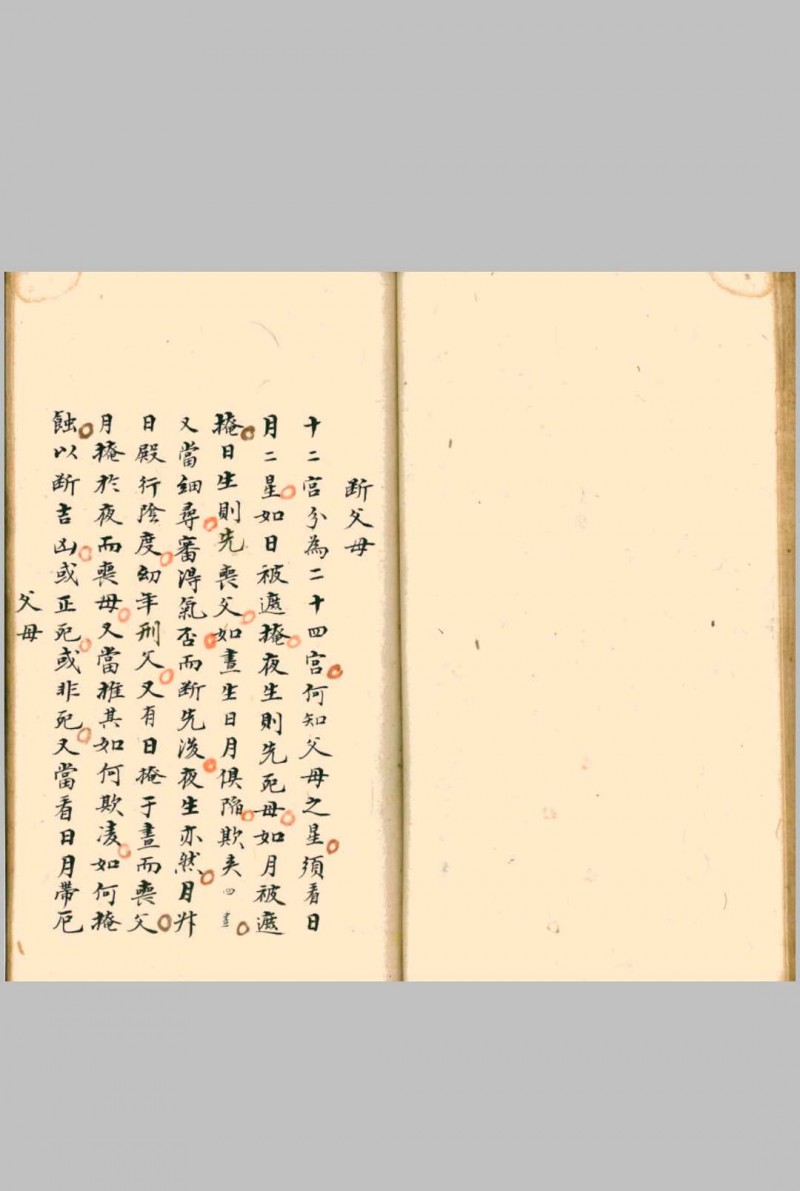 断父母
十二宫分為二十四宫何知父母之星須看日
月二星如日被遮掩夜生則先死母如月被遮
掩日生則先喪父如晝生日月俱陷欺夾四
又當細尋審得氣否而断先後夜生亦然月升
日殿行陰度幼年刑父又有日掩于晝而喪父
月掩於夜而喪母又當推其如何欺凌如何掩
蝕以断吉凶或正死或非死又當看日月帶厄
父母